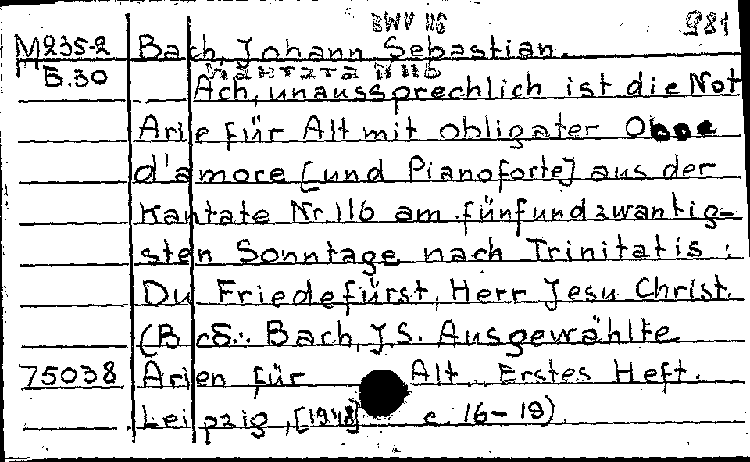 BWV 116 981
M235-2 Bach, Johann Sebastian.
Kantate N 116
B.30 Ach, unaussprechlich ist die Not
Arie für Alt mit obligater Oboe
d'amore [und Pianoforte] aus der
Kantate Nr.116 am fünfundzwantig-
sten Sonntage nach Trinitatis:
Du Friedefürst, Herr Jesu Christ.
(В сб.: Bach, J.S. Ausgewählte
75038 Arien für Alt. Erstes Heft.
Leipzig, [1948] c. 16-19)